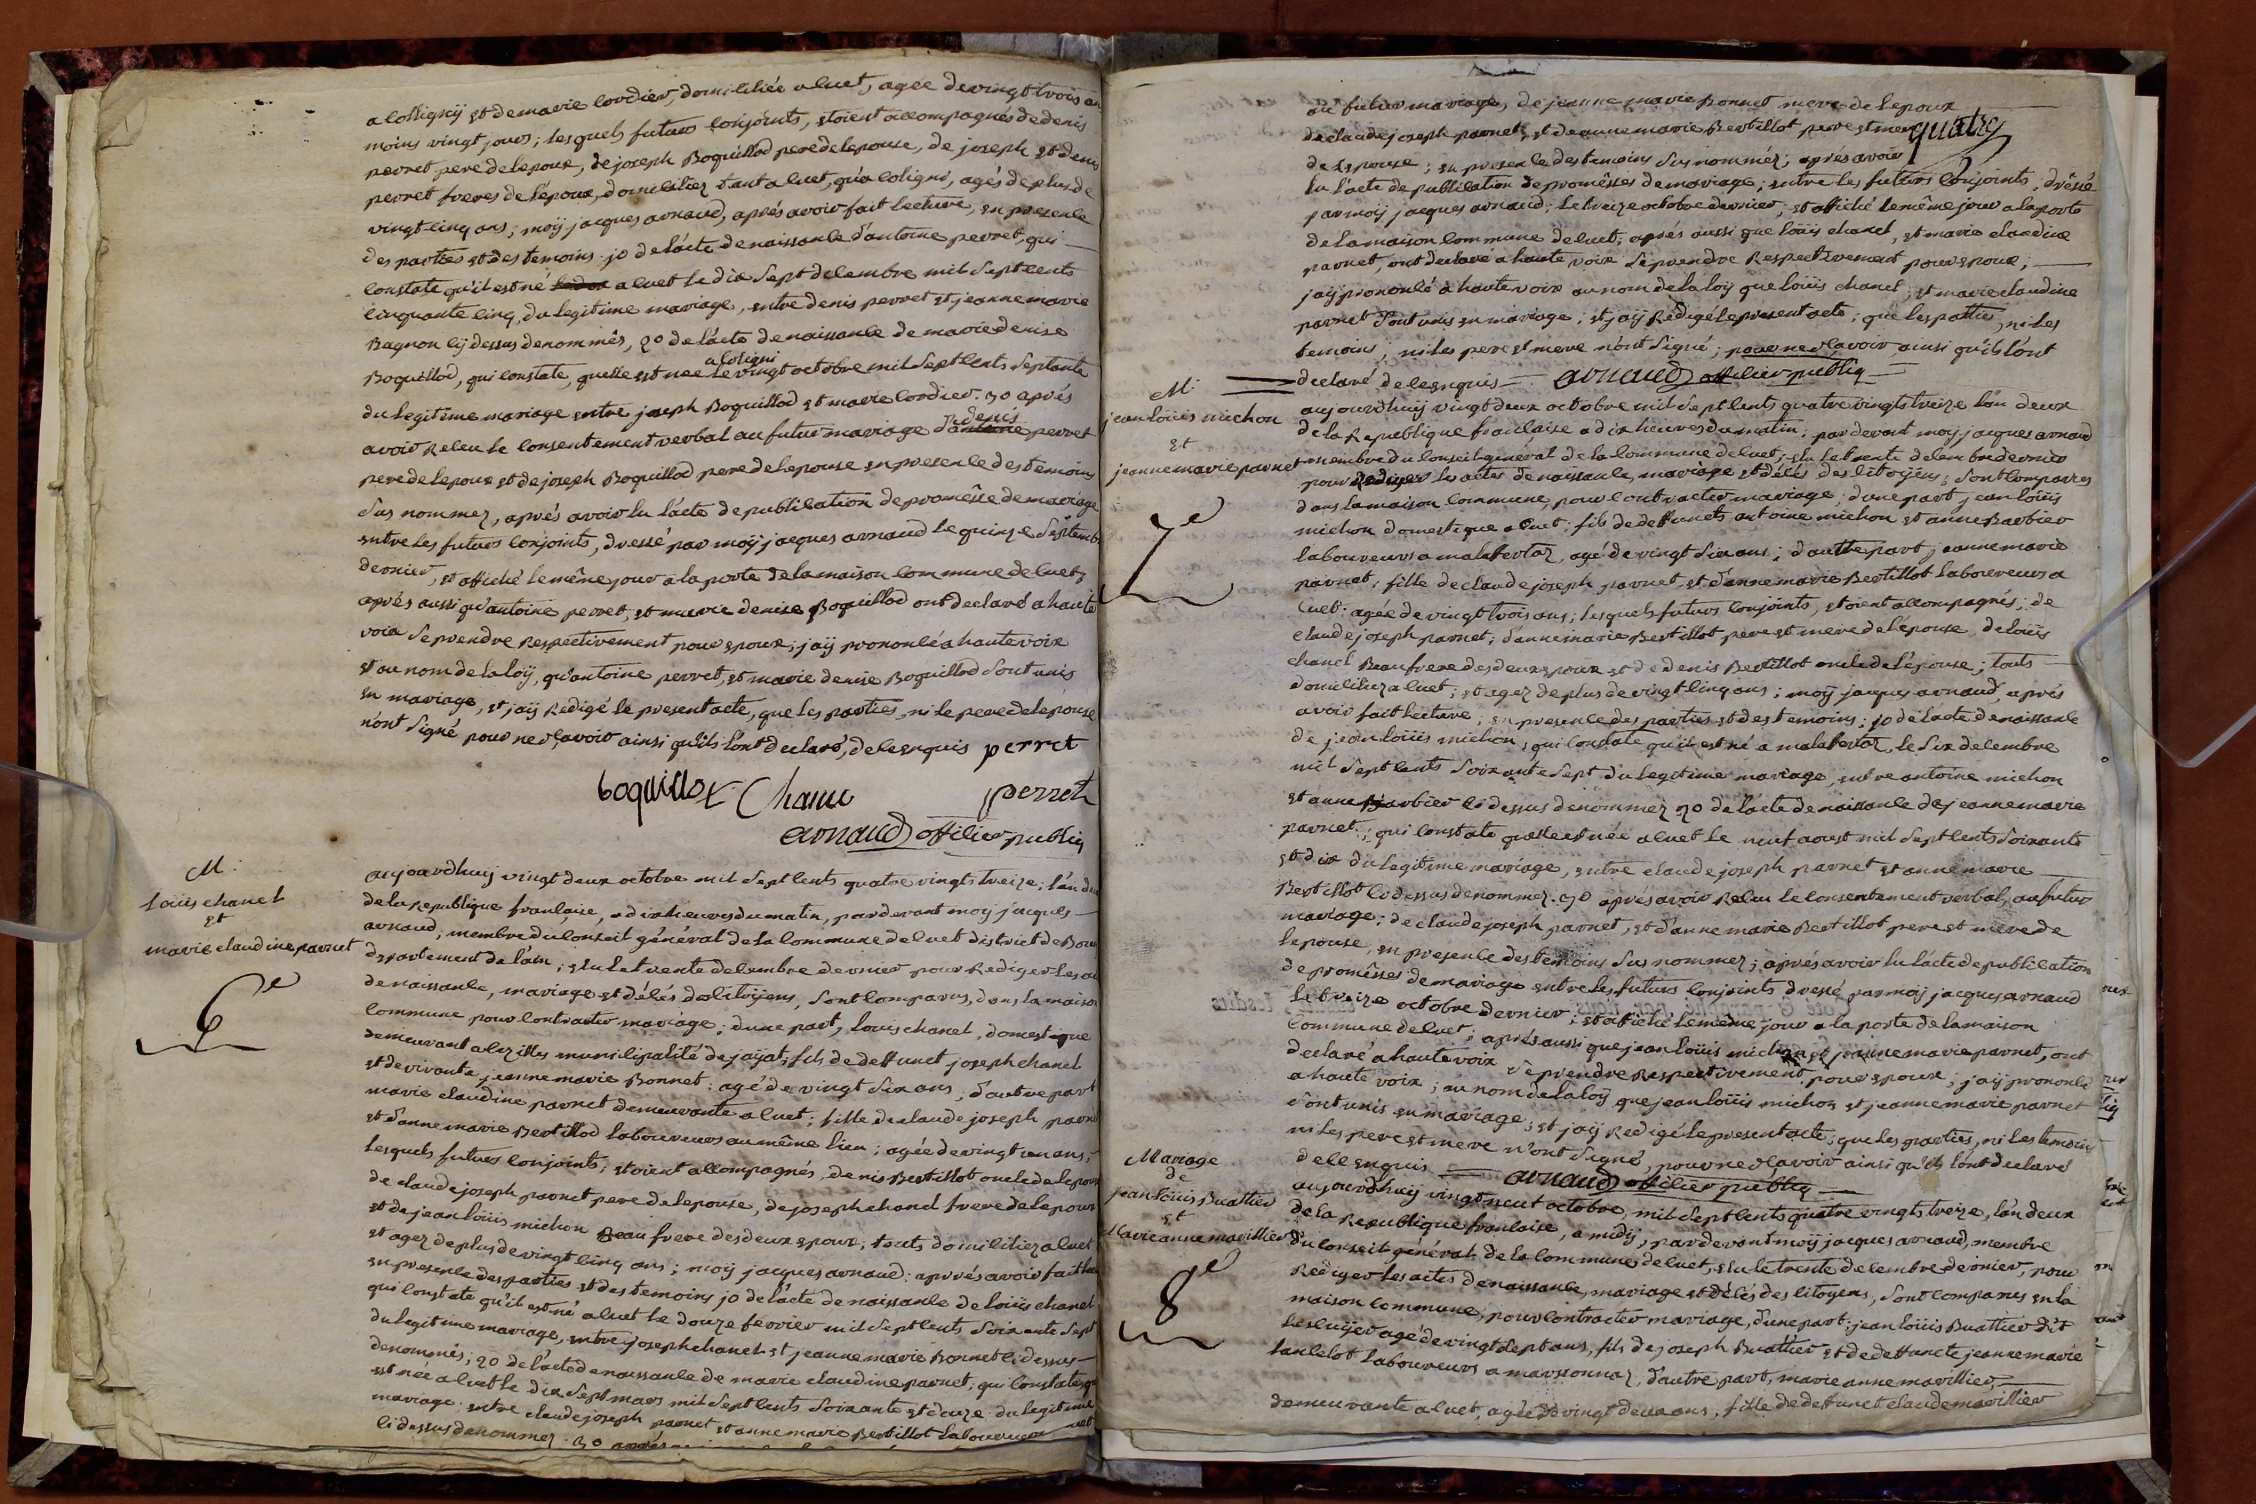 a Colligniÿ et de marie Cordier, domiciliée a Cuet, agée de vingt trois ans
moins vingt jours; lesquels futurs Conjoints, etoient accompagnés de denis
perret pere de lepoux, de joseph Boquillod pere de lepouse, de joseph et denis
perret freres de l'époux, domiciliez tant a Cuet, qu'a Coligni, agés de plus de
vingt cinq ans; moÿ jacques arnaud, aprés avoir fait lecture, en presence
des parties et des temoins. 1o de l'acte de naissance d'antoine perret, qui
Constate qu'il est né a Cuet le dix Sept decembre mil Sept cents
Cinquante cinq, du legitime mariage, entre denis perret et jeanne marie
Bagnon cÿ dessus denommés, 2o de l'acte de naissance de marie denise
a Coligni
Boquillod, qui Constate, quelle est nee le vingt octobre mil Sept cents Septante
du legitime mariage entre joseph Boquillod et marie Cordier. 3o aprés
denis
avoir Receu le consentement verbal au futur mariage d'antoine perret
pere de lepoux et de joseph Boquillod pere de lepouse en presence des temoins
Sus nommez, aprés avoir lu l'acte de publication de promêsse de mariage
entre les futurs Conjoints, dressé par moÿ jacques arnaud le quinze Septembre
dernier, et affiché le même jour a la porte de la maison Commune de Cuet,
aprés aussi qu'antoine perret, et marie denise Boquillod ont declaré a haute
voix Se prendre Respectivement pour epoux; j'aÿ prononcé a haute voix
et au nom de la loÿ, qu'antoine perret, et marie denise Boquillod Sont unis
en mariage, et j'aÿ Redigé le present acte, que les parties, ni le pere de lépouse
n'ont Signé pour ne Scavoir ainsi qu'ils l'ont declaré, de ce enquis perret
boquillod Chanu perret
arnaud officier public
M.
Loüis chanel
et
marie claudine parnet
6e
aujourdhuÿ vingt deux octobre mil Sept cents quatre vingts treize; l'an deux
de la Republique francaise, a dix heures du matin, pardevant moÿ jacques
arnaud, membre du Conseil général de la Commune de Cuet district de Bourg
departement de l'ain; elu le trente decembre dernier pour Rediger les actes
de naissance, mariage et décés des Citoÿens, Sont Comparus, dans la maison
Commune pour Contracter mariage; d'une part, Louis chanel, domestique
demeurant a Cezilles municipalité de jaÿat, fils de deffunct joseph chanel
et de vivante jeanne marie Bonnet; agé de vingt Six ans; d'autre part
marie claudine parnet demeurante a Cuet; fille de claude joseph parnet
et d'anne marie Bertillod laboureurs au même lieu; agée de vingt un ans;
lesquels futurs Conjoints, etoient accompagnés, denis Bertillot oncle de lepouse
de claude joseph parnet pere de lepouse, de joseph chanel frere de lepoux
et de jean loüis michon Beau frere des deux epoux; touts domiciliez a Cuet
et agez de plus de vingt cinq ans; moÿ jacques arnaud; aprés avoir fait lecture
en presence des parties et des temoins 1o de l'acte de naissance de loüis chanel
qui Constate qu'il est né a Cuet le douze fevrier mil Sept cents Soixante Sept
du legitime mariage, entre joseph chanel et jeanne marie Bonnet ci dessus
denommés; 2o de l'acte de naissance de marie claudine parnet; qui Constate, que
est née a Cuet le dix Sept mars mil Sept cents Soixante et douze du legitime
mariage. entre claude joseph parnet et anne marie Bertillot laboureurs
ci dessus denommez. 3o aprés
au futur mariage, de jeanne marie Bonnet mere de lepoux
quatre
de claude joseph parnet, et d'anne marie Bertillot pere et mere
de Lepouse; en presence des temoins Sus nommés; aprés avoir
lu l'acte de publication de promêsses de mariage; entre les futurs Conjoints; dréssé
par moÿ jacques arnaud; le treize octobre dernier; et affiché le même jour a la porte
de la maison Commune de Cuet; aprés aussi que loüis chanel, et marie claudine
parnet, ont declaré a haute voix Se prendre Respectivement pour epoux;
j'aÿ prononcé a haute voix au nom de la loÿ que loüis chanel, et marie claudine
parnet Sont unis en mariage; et j'aÿ Redigé le present acte; que les parties, ni les
temoins; ni les pere et mere n'ont Signé; pour ne Scavoir ainsi qu'ils l'ont
declaré de ce enquis arnaud officier public
M.
jean loüis michon
et
jeanne marie parnet
7e
aujourdhuÿ vingt deux octobre mil Sept cents quatre vingts treize l'an deux
de la Republique francaise a dix heures du matin; pardevant moÿ jacques arnaud
membre du Conseil general de la Commune de Cuet; elu le trente decembre dernier
pour Rediger les actes de naissance, mariage et décés des Citoÿens; Sont Comparus
dans la maison Commune, pour Contracter mariage; d'une part jean loüis
michon domestique a Cuet; fils de deffuncts antoine michon et anne Barbier
laboureurs a malafertaz, agé de vingt Six ans; d'autre part, jeanne marie
parnet, fille de claude joseph parnet, et d'anne marie Bertillot laboureurs a
Cuet. agée de vingt trois ans; lesquels futurs Conjoints, etoient accompagnés; de
claude joseph parnet; d'anne marie Bertillot pere et mere de lépouse, de loüis
chanel Beau frere des deux epoux et de denis Bertillot oncle de lépouse; touts
domiciliez a Cuet; et agez de plus de vingt cinq ans; moÿ jacques arnaud, aprés
avoir fait lecture; en presence des parties et des temoins; 1o de l'acte de naissance
de jean loüis michon; qui Constate qu'il est né a malafertaz, le Six decembre
mil Sept cents Soixante Sept du legitime mariage, entre antoine michon
et anne Barbier ci dessus denommez 2o de l'acte de naissance de jeanne marie
parnet; qui Constate quelle est née a Cuet le neuf aoust mil Sept cents Soixante
et dix du legitime mariage, entre claude joseph parnet et anne marie
Bertillot ci dessus denommez. 3o aprés avoir Receu le consentement verbal, au futur
mariage; de claude joseph parnet, et d'anne marie Bertillot pere et mere de
lepouse, en presence des temoins Sus nommez; aprés avoir lu l'acte de publication
de promêsses de mariage entre les futurs Conjoints dressé par moÿ jacques arnaud
le treize octobre dernier; et affiché le même jour a la porte de la maison
Commune de Cuet; aprés aussi que jean loüis michon et jeanne marie parnet, ont
declaré a haute voix Se prendre Respectivement pour epoux; j'aÿ prononcé
a haute voix; au nom de la loÿ que jean loüis michon et jeanne marie parnet
Sont unis en mariage; et j'aÿ Redigé le present acte; que les parties, ni les temoins
ni les pere et mere n'ont Signé, pour ne Scavoir ainsi qu'ils l'ont declaré
de ce enquis arnaud officier public
Mariage
de
jean loüis Buattier
et
Marie anne mavillier
8e
aujourdhuÿ vingt neuf octobre mil Sept cents quatre vingts treize, l'an deux
de la Republique francaise, a midÿ, pardevant moÿ jacques arnaud, membre
du Conseil général de la Commune de Cuet, elu le trente decembre dernier, pour
Rediger les actes de naissance, mariage et décés des Citoÿens, Sont Comparus en la
maison Commune, pour Contracter mariage, d'une part: jean loüis Buattier dit
Lescuÿer agé de vingt Sept ans, fils de joseph Buattier et de deffuncte jeanne marie
Lancelot laboureurs a marssonnaz, d'autre part, marie anne mavillier,
demeurante a Cuet, agée de vingt deux ans, fille de deffunct claude mavillier